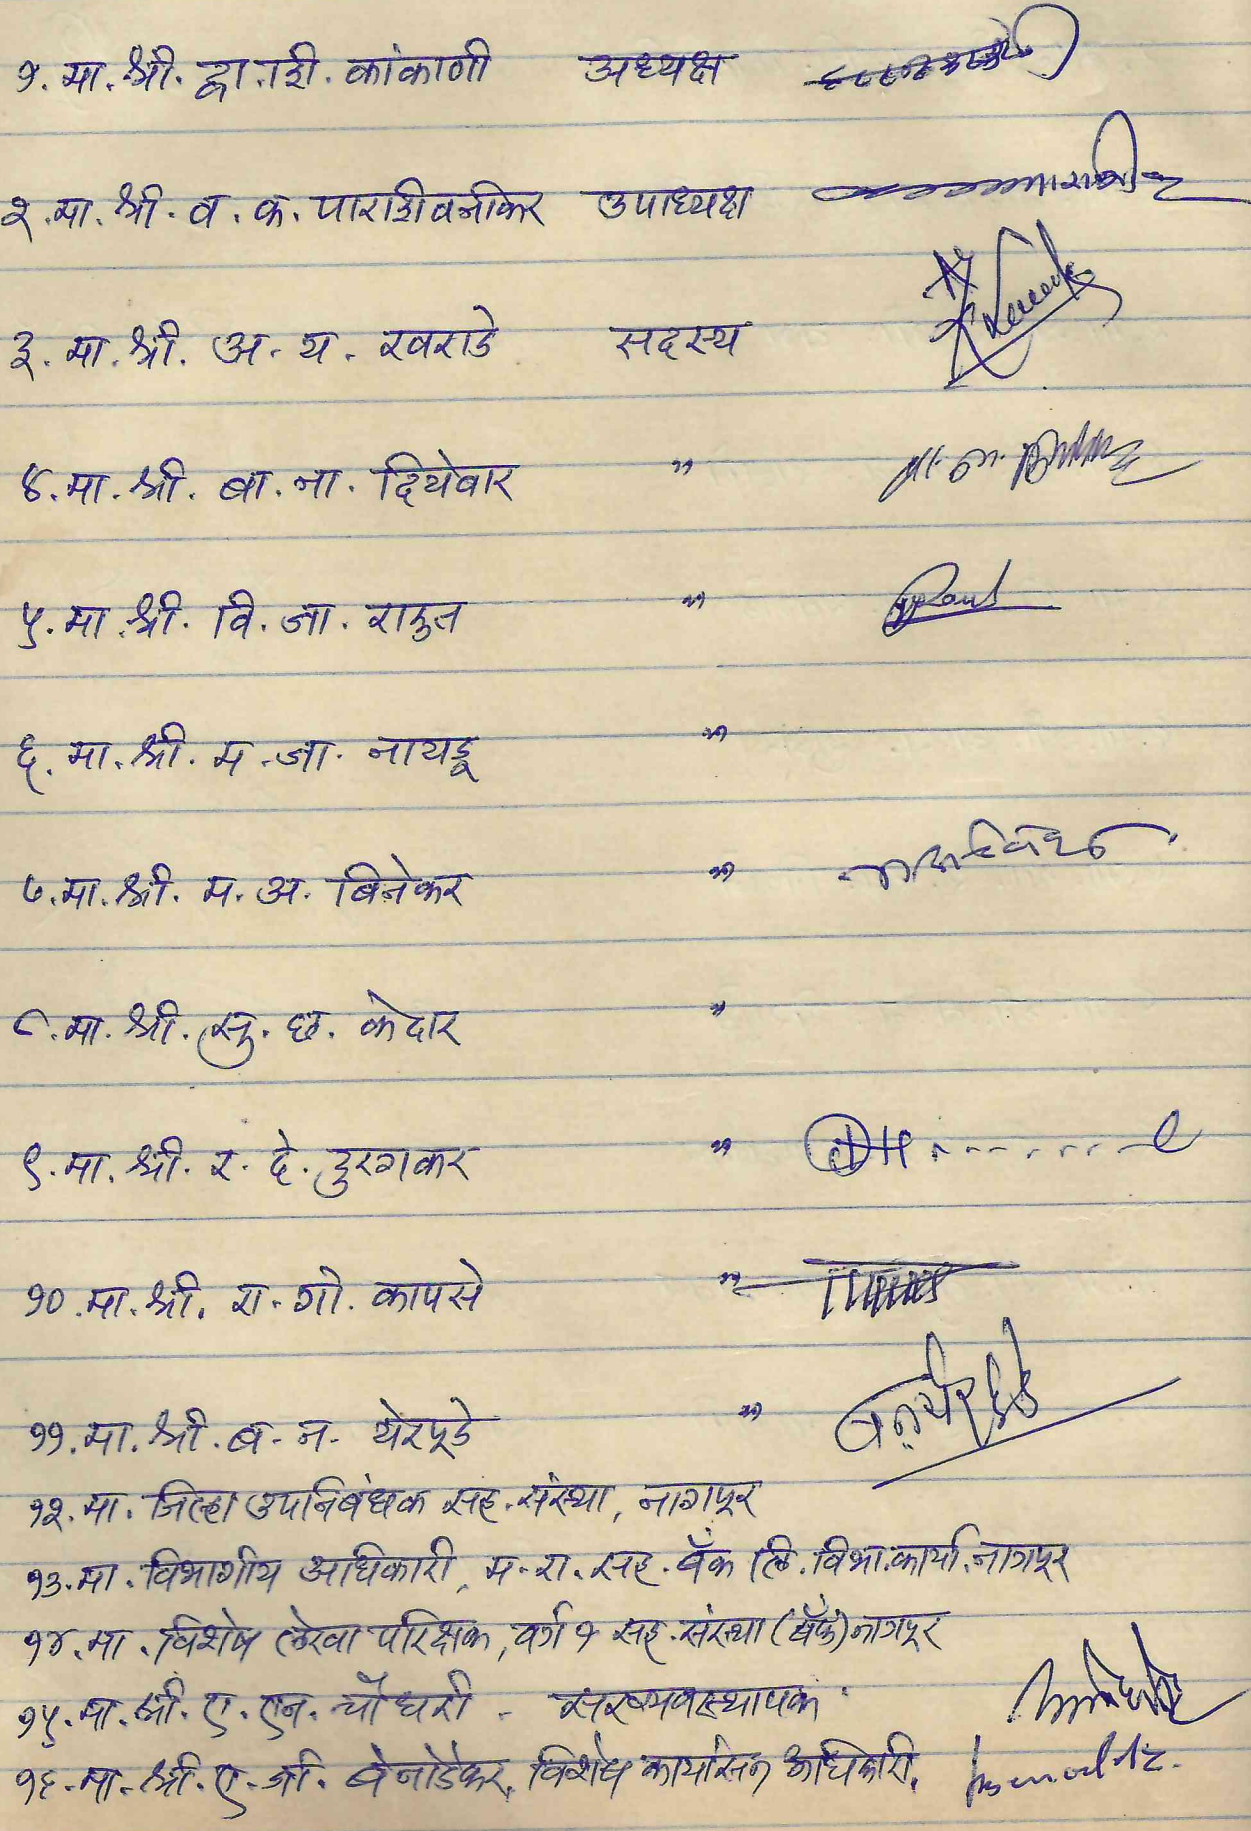 १. मा. श्री. द्वा. शि. कांकाणी अध्यक्ष
२. मा. श्री. व. क. पाराशिवनीकर उपाध्यक्ष
३. मा. श्री. अ. य. खराडे सदस्य
४. मा. श्री. बा. ना. दियेवार "
५. मा. श्री. वि. जा. राऊत "
६. मा. श्री. म. जा. नायडू "
७. मा. श्री. म. अ. बिनेकर "
८. मा. श्री. सु. छ. केदार "
९. मा. श्री. र. दे. दुरगकर "
१०. मा. श्री. रा. गो. कापसे "
११. मा. श्री. ब. न. येरपूडे "
१२. मा. जिल्हा उपनिबंधक सह. संस्था, नागपूर
१३. मा. विभागीय अधिकारी, म. रा. सह. बँक लि. विभा. कार्या. नागपूर
१४. मा. विशेष लेखा परिक्षक, वर्ग १ सह. संस्था (बँक) नागपूर
१५. मा. श्री. ए. एन. चौधरी - सरव्यवस्थापक
१६. मा. श्री. ए. जी. बेनोडेकर, विशेष कार्यासन अधिकारी.